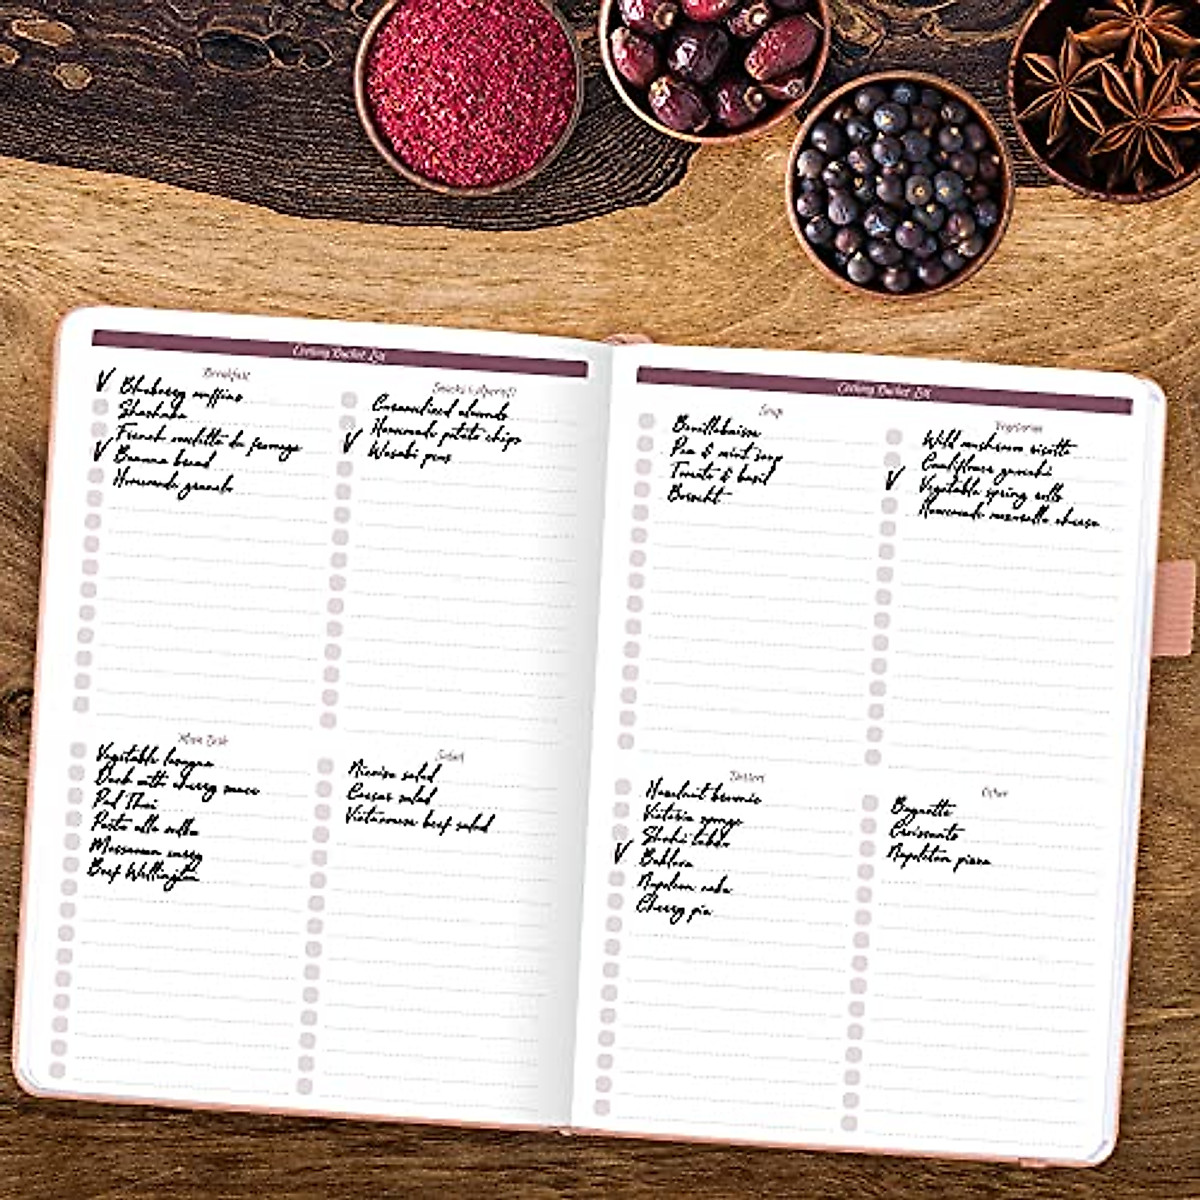 Cooking Bucket List
Breakfast
V Blueberry muffins
Shashuka
French omelette du fromage
V Banana bread
Homemade granola
Snacks
Caramelized almonds
Homemade potato chips
V Wasabi peas
Main Dish
Vegetable lasagna
Duck with cherry sauce
Pad Thai
Pasta alla
Massaman curry
Beef Wellington
Salad
Nicoise salad
Caesar salad
Vietnamese beef salad
Cooking Bucket List
Soup
Bouillabaisse
Pea & mint soup
Tomato & basil
Borscht
Vegetarian
Wild mushroom risotto
Cauliflower gnocchi
V Vegetable spring rolls
Homemade cheese
Dessert
Hazelnut brownie
Victoria sponge
V Baklava
Napoleon cake
Cherry pie
Other
Baguette
Croissants
Napoletan pizza